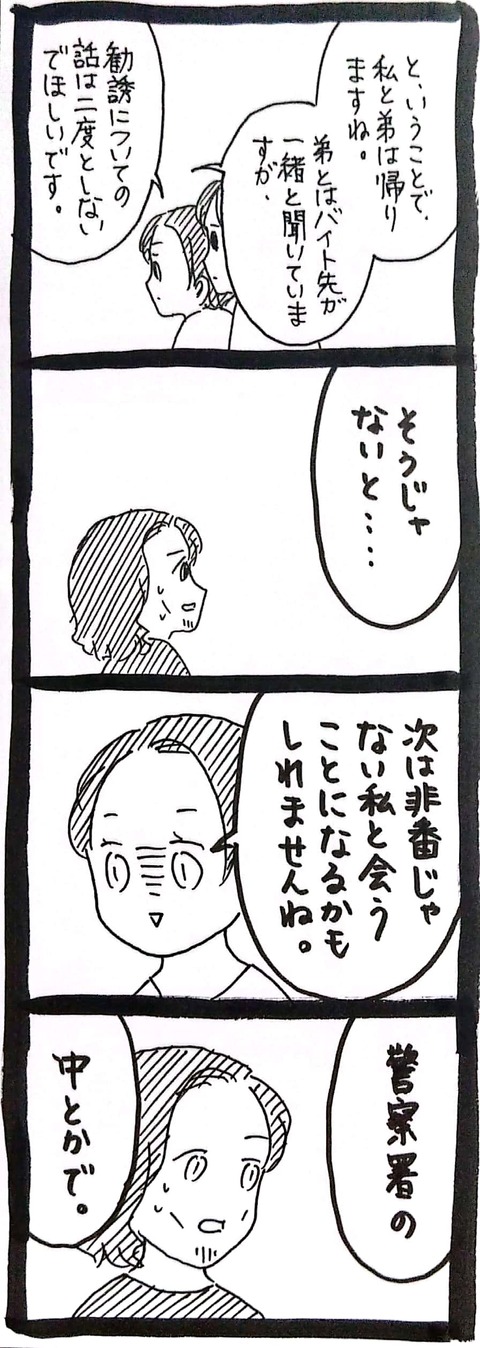 と、いうことで、
私と弟は帰り
ますね。
弟とはバイト先が
一緒と聞いていま
すが、
勧誘についての
話は二度としない
でほしいです。
そうじゃ
ないと・・・・
次は非番じゃ
ない私と会う
ことになるかも
しれませんね。
警察署の
中とかで。